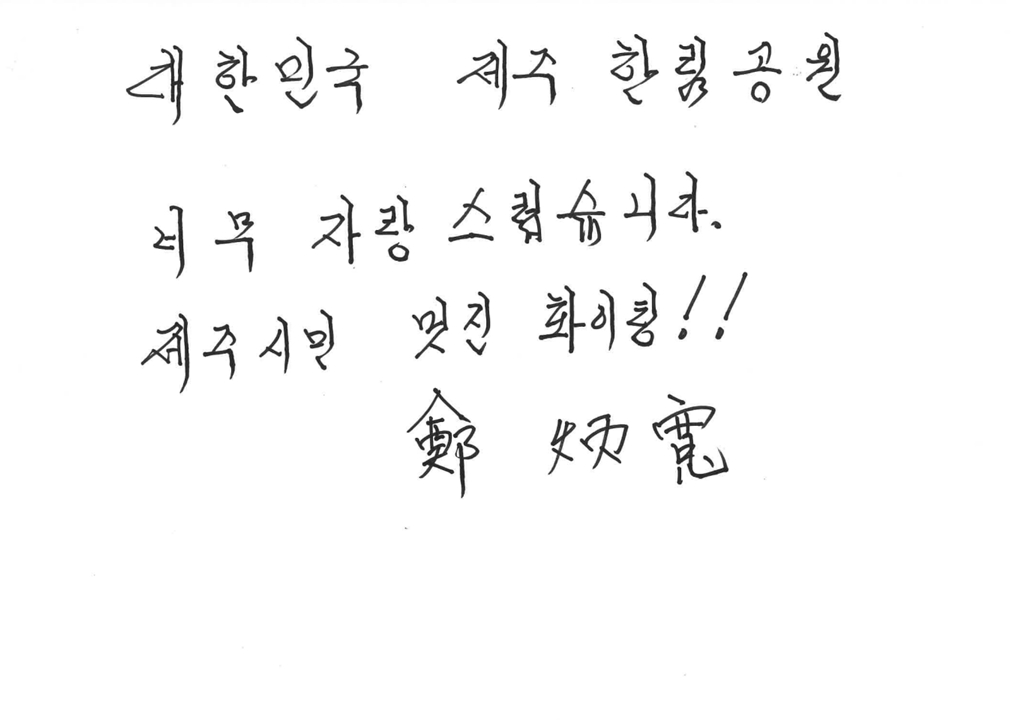 대한민국 제주 한림공원
너무 자랑 스럽습니다.
제주시민 멋진 화이팅!!
鄭 炳 寬